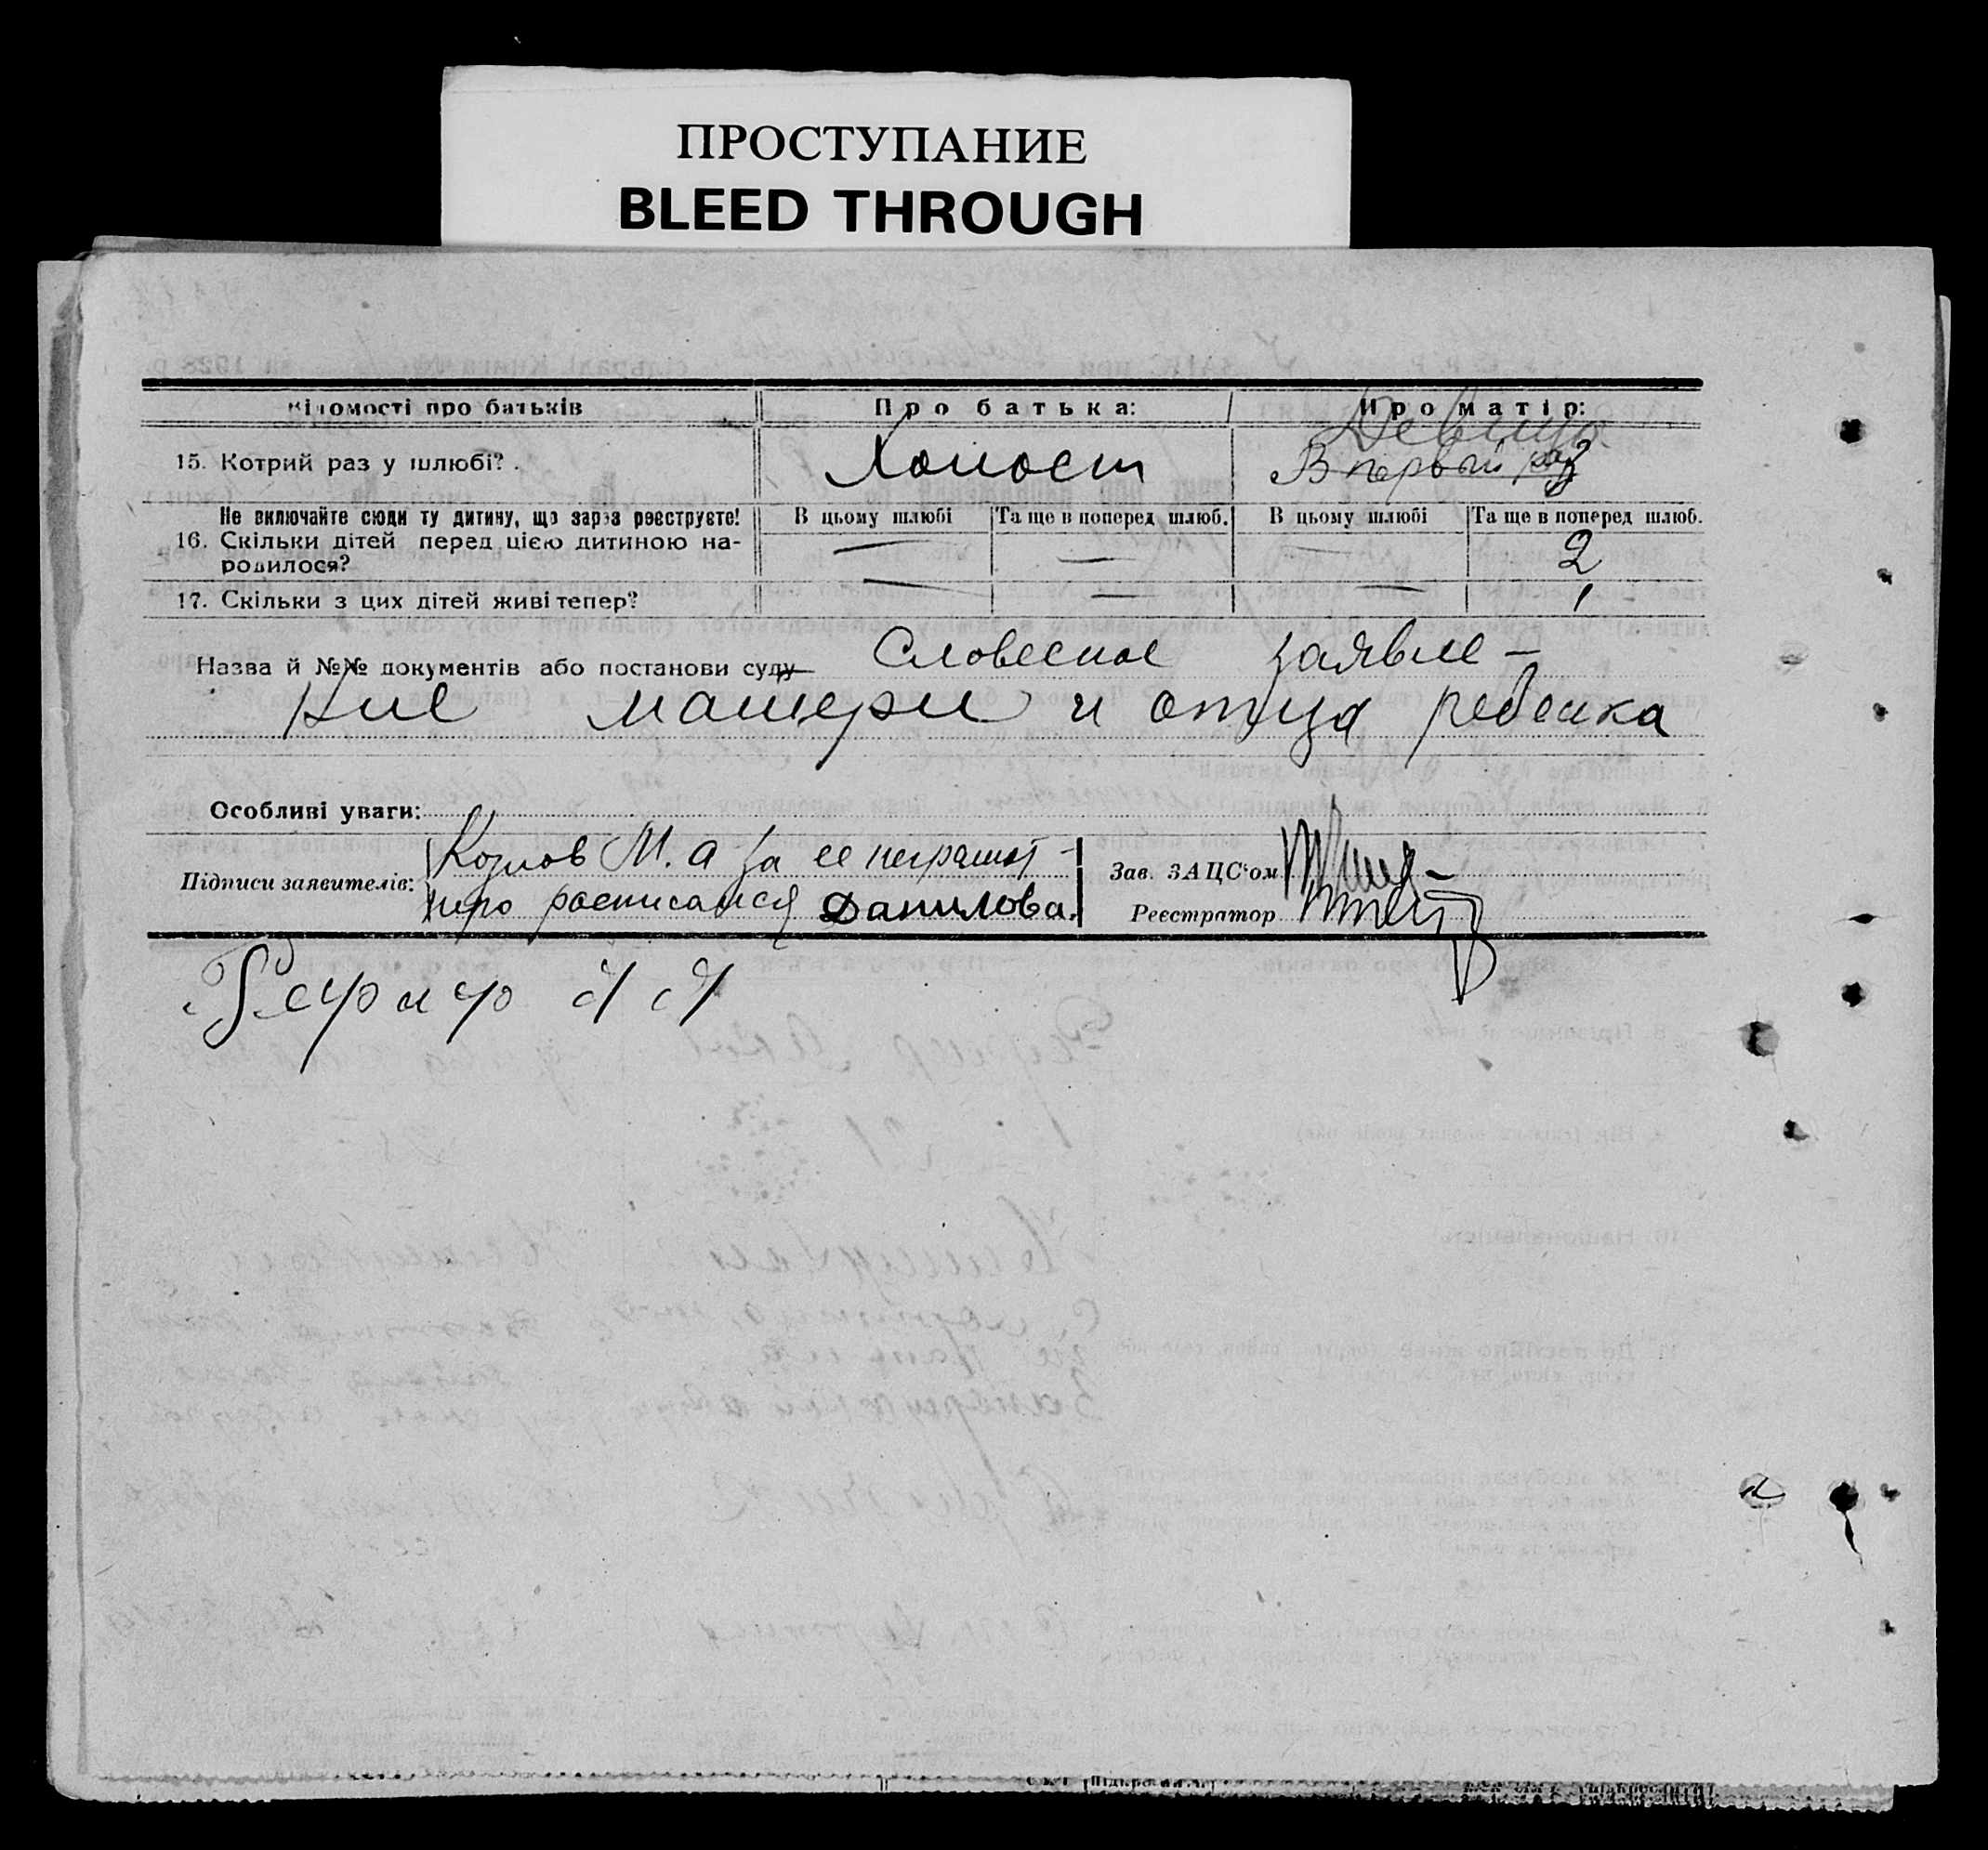 ПРОСТУПАНИЕ
BLEED THROUGH
Відомості про батьків Про батька: Про матір:
Девица
15. Котрий раз у шлюбі? Холост В первый раз
Не включайте сюди ту дитину, що зараз реєструєте! В цьому шлюбі Та ще в поперед шлюб. В цьому шлюбі Та ще в поперед шлюб.
16. Скільки дітей перед цією дитиною на-
родилося? — — — 2
17. Скільки з цих дітей живі тепер? — — — 1
Назва й №№ документів або постанови суду Словесное заявле-
ние матери и отца ребенка
Особливі уваги:
Підписи заявителів: Козлов М. а за ее неграмот-
ную росписался Данилова.
Зав. ЗАЦС'ом
Реєстратор